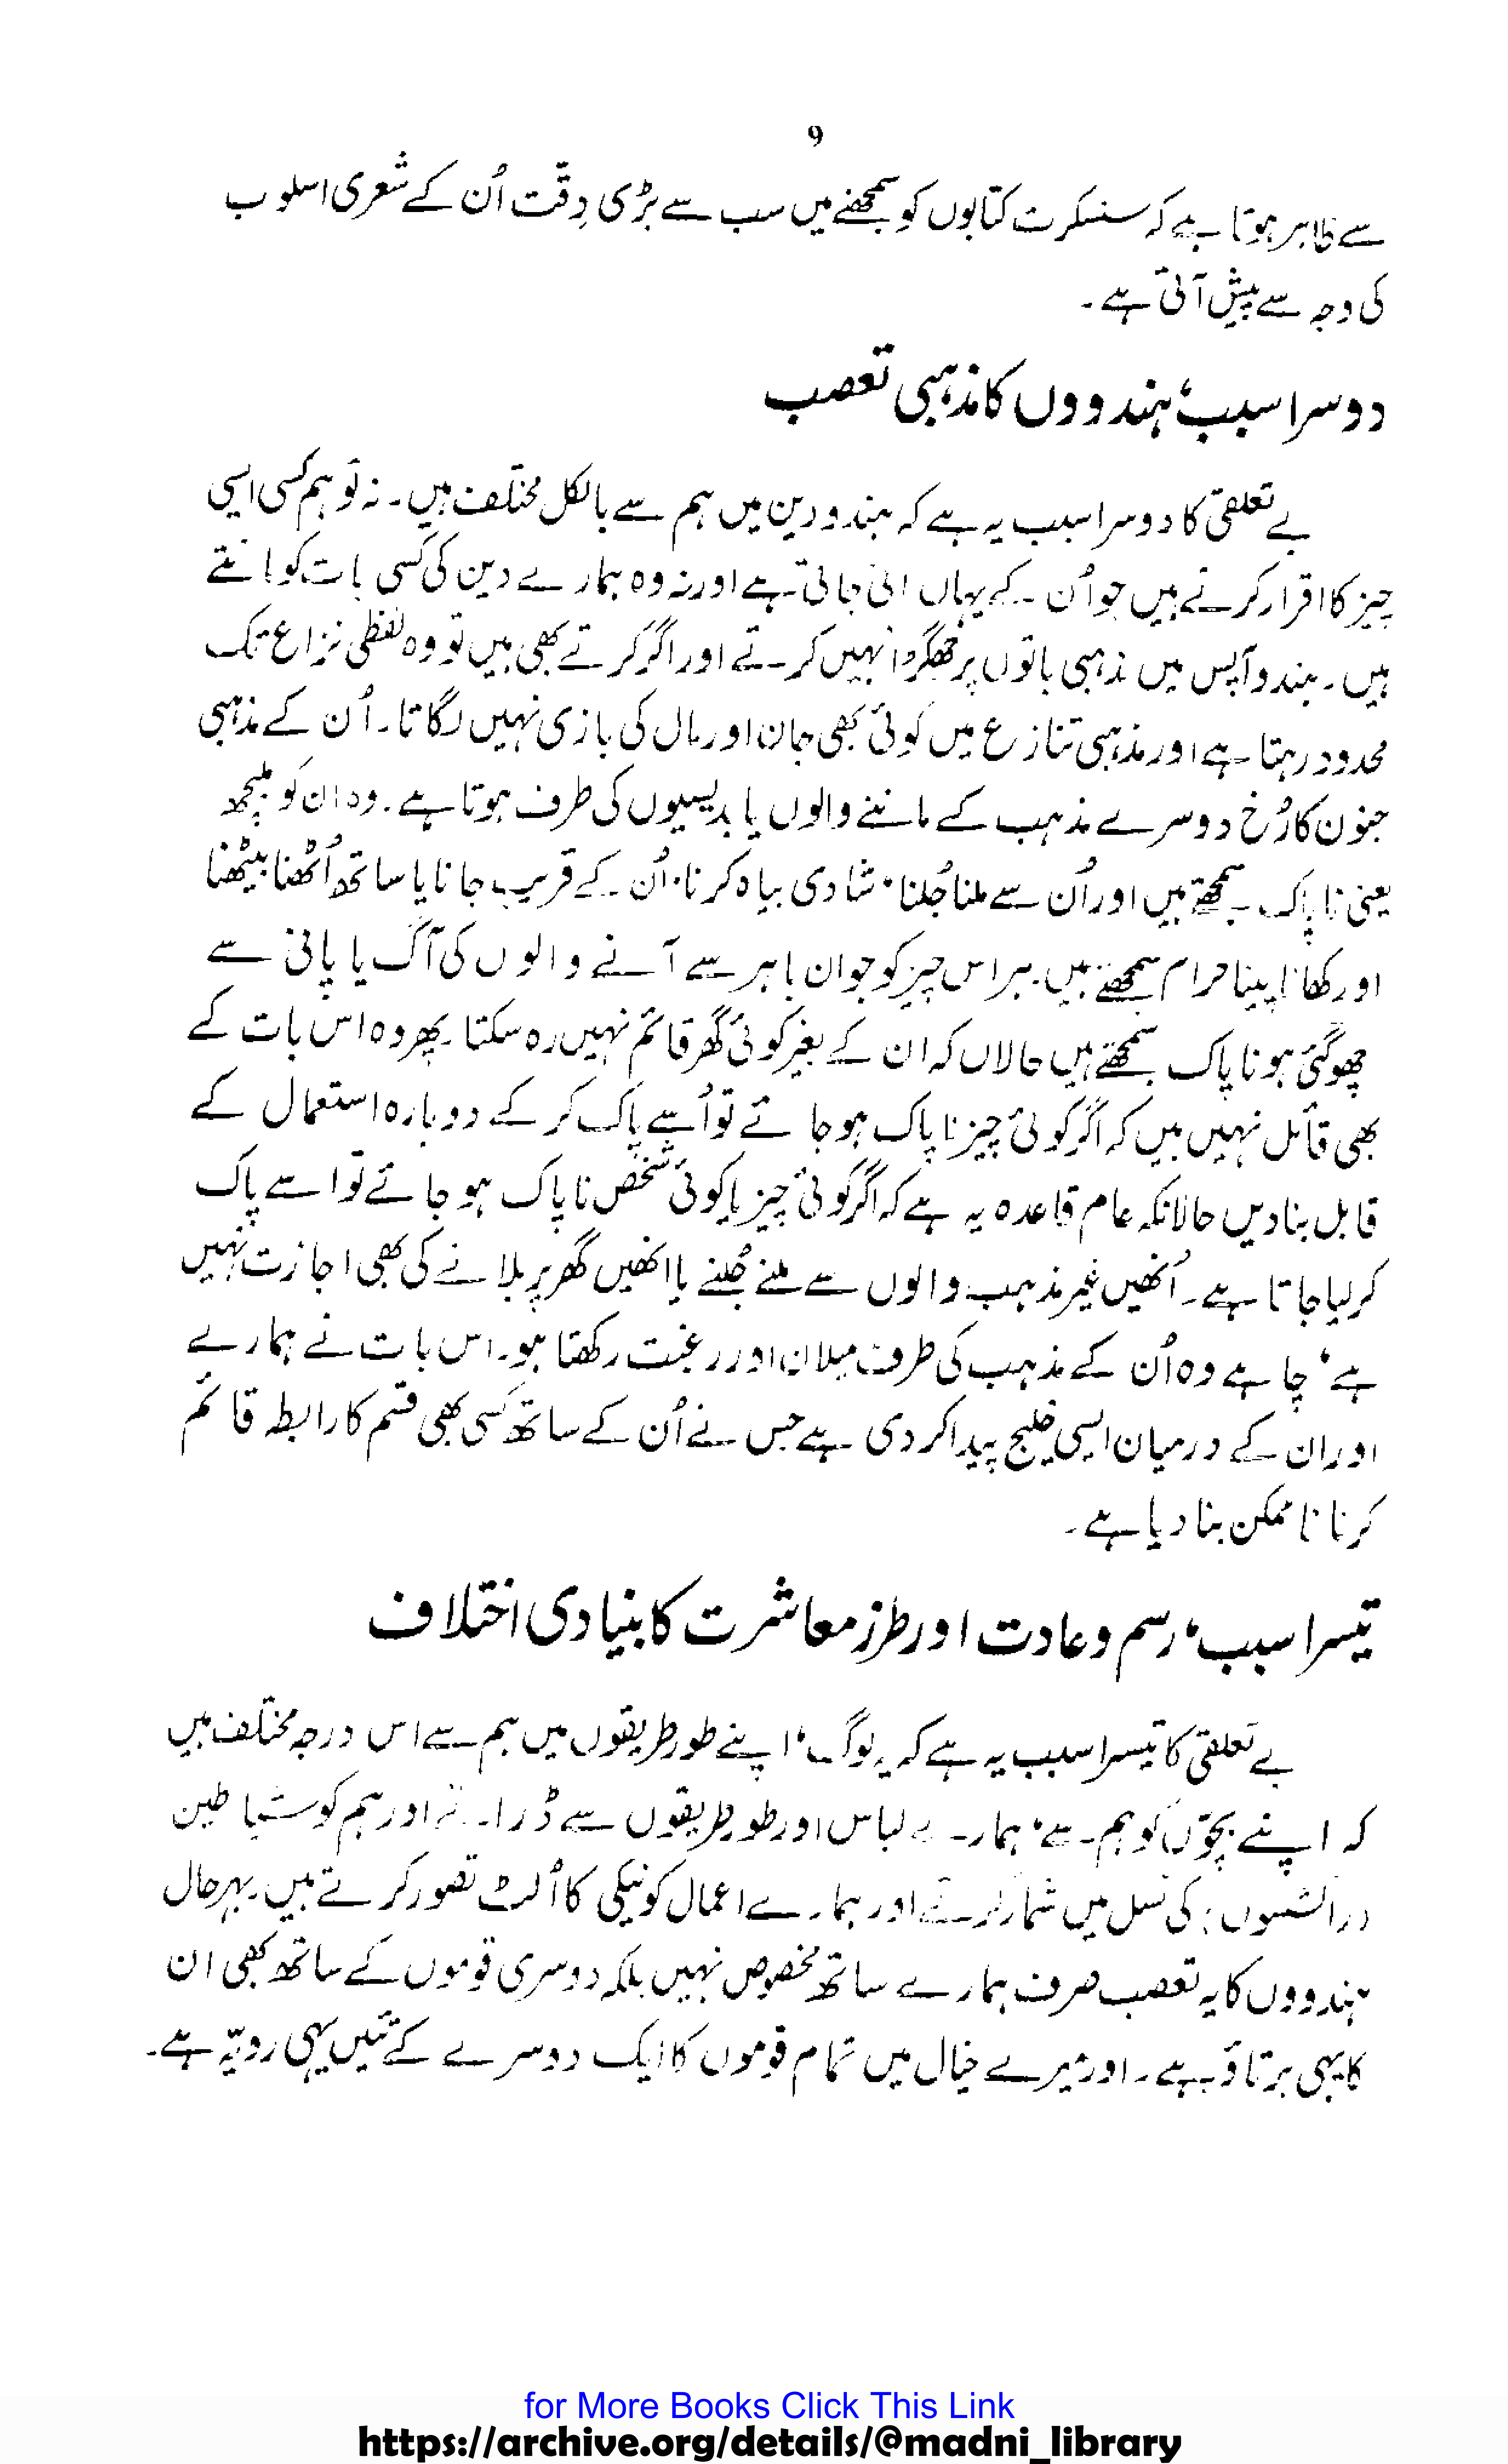 9
سے ظاہر ہوتا ہے کہ سنسکرت کتابوں کو سمجھنے میں سب سے بڑی دِقّت اُن کے شعری اسلوب
کی وجہ سے پیش آتی ہے۔
دوسرا سبب، ہندووں کا مذہبی تعصب
بے تعلقی کا دوسرا سبب یہ ہے کہ ہندو دین میں ہم سے بالکل مختلف ہیں۔ نہ تو ہم کسی ایسی
چیز کا اقرار کرتے ہیں جو اُن کے یہاں مانی جاتی ہے اور نہ وہ ہمارے دین کی کسی بات کو مانتے
ہیں۔ ہندو آپس میں مذہبی باتوں پر جھگڑا نہیں کرتے اور اگر کرتے بھی ہیں تو وہ لفظی نزاع تک
محدود رہتا ہے اور مذہبی تنازع میں کوئی بھی جان اور مال کی بازی نہیں لگاتا۔ اُن کے مذہبی
جنون کا رُخ دوسرے مذہب کے ماننے والوں یا بدیسیوں کی طرف ہوتا ہے۔ وہ ان کو ملیچھ
یعنی ناپاک سمجھتے ہیں اور اُن سے ملنا جُلنا، شادی بیاہ کرنا، اُن کے قریب جانا یا ساتھ اُٹھنا بیٹھنا
اور کھانا پینا حرام سمجھتے ہیں۔ ہر اس چیز کو جو ان باہر سے آنے والوں کی آگ یا پانی سے
چھو گئی ہو ناپاک سمجھتے ہیں حالاں کہ ان کے بغیر کوئی گھر قائم نہیں رہ سکتا۔ پھر وہ اس بات کے
بھی قائل نہیں ہیں کہ اگر کوئی چیز ناپاک ہو جائے تو اُسے پاک کر کے دوبارہ استعمال کے
قابل بنا دیں حالانکہ عام قاعدہ یہ ہے کہ اگر کوئی چیز یا کوئی شخص ناپاک ہو جائے تو اسے پاک
کر لیا جاتا ہے۔ اُنھیں غیر مذہب والوں سے ملنے جُلنے یا انھیں گھر پر بلانے کی بھی اجازت نہیں
ہے، چاہے وہ اُن کے مذہب کی طرف میلان اور رغبت رکھتا ہو۔ اس بات نے ہمارے
اور ان کے درمیان ایسی خلیج پیدا کر دی ہے جس نے اُن کے ساتھ کسی بھی قسم کا رابطہ قائم
کرنا ناممکن بنا دیا ہے۔
تیسرا سبب، رسم و عادت اور طرز معاشرت کا بنیادی اختلاف
بے تعلقی کا تیسرا سبب یہ ہے کہ یہ لوگ، اپنے طور طریقوں میں ہم سے اس درجہ مختلف ہیں
کہ اپنے بچّوں کو ہم سے، ہمارے لباس اور طور طریقوں سے ڈراتے اور ہم کو شیاطین
(راکشسوں) کی نسل میں شمار کرتے اور ہمارے اعمال کو نیکی کا اُلٹ تصور کرتے ہیں۔ بہرحال
ہندووں کا یہ تعصب صرف ہمارے ساتھ مخصوص نہیں بلکہ دوسری قوموں کے ساتھ بھی ان
کا یہی برتاؤ ہے۔ اور میرے خیال میں تمام قوموں کا ایک دوسرے کے تئیں یہی رویّہ ہے۔
for More Books Click This Link
https://archive.org/details/@madni_library